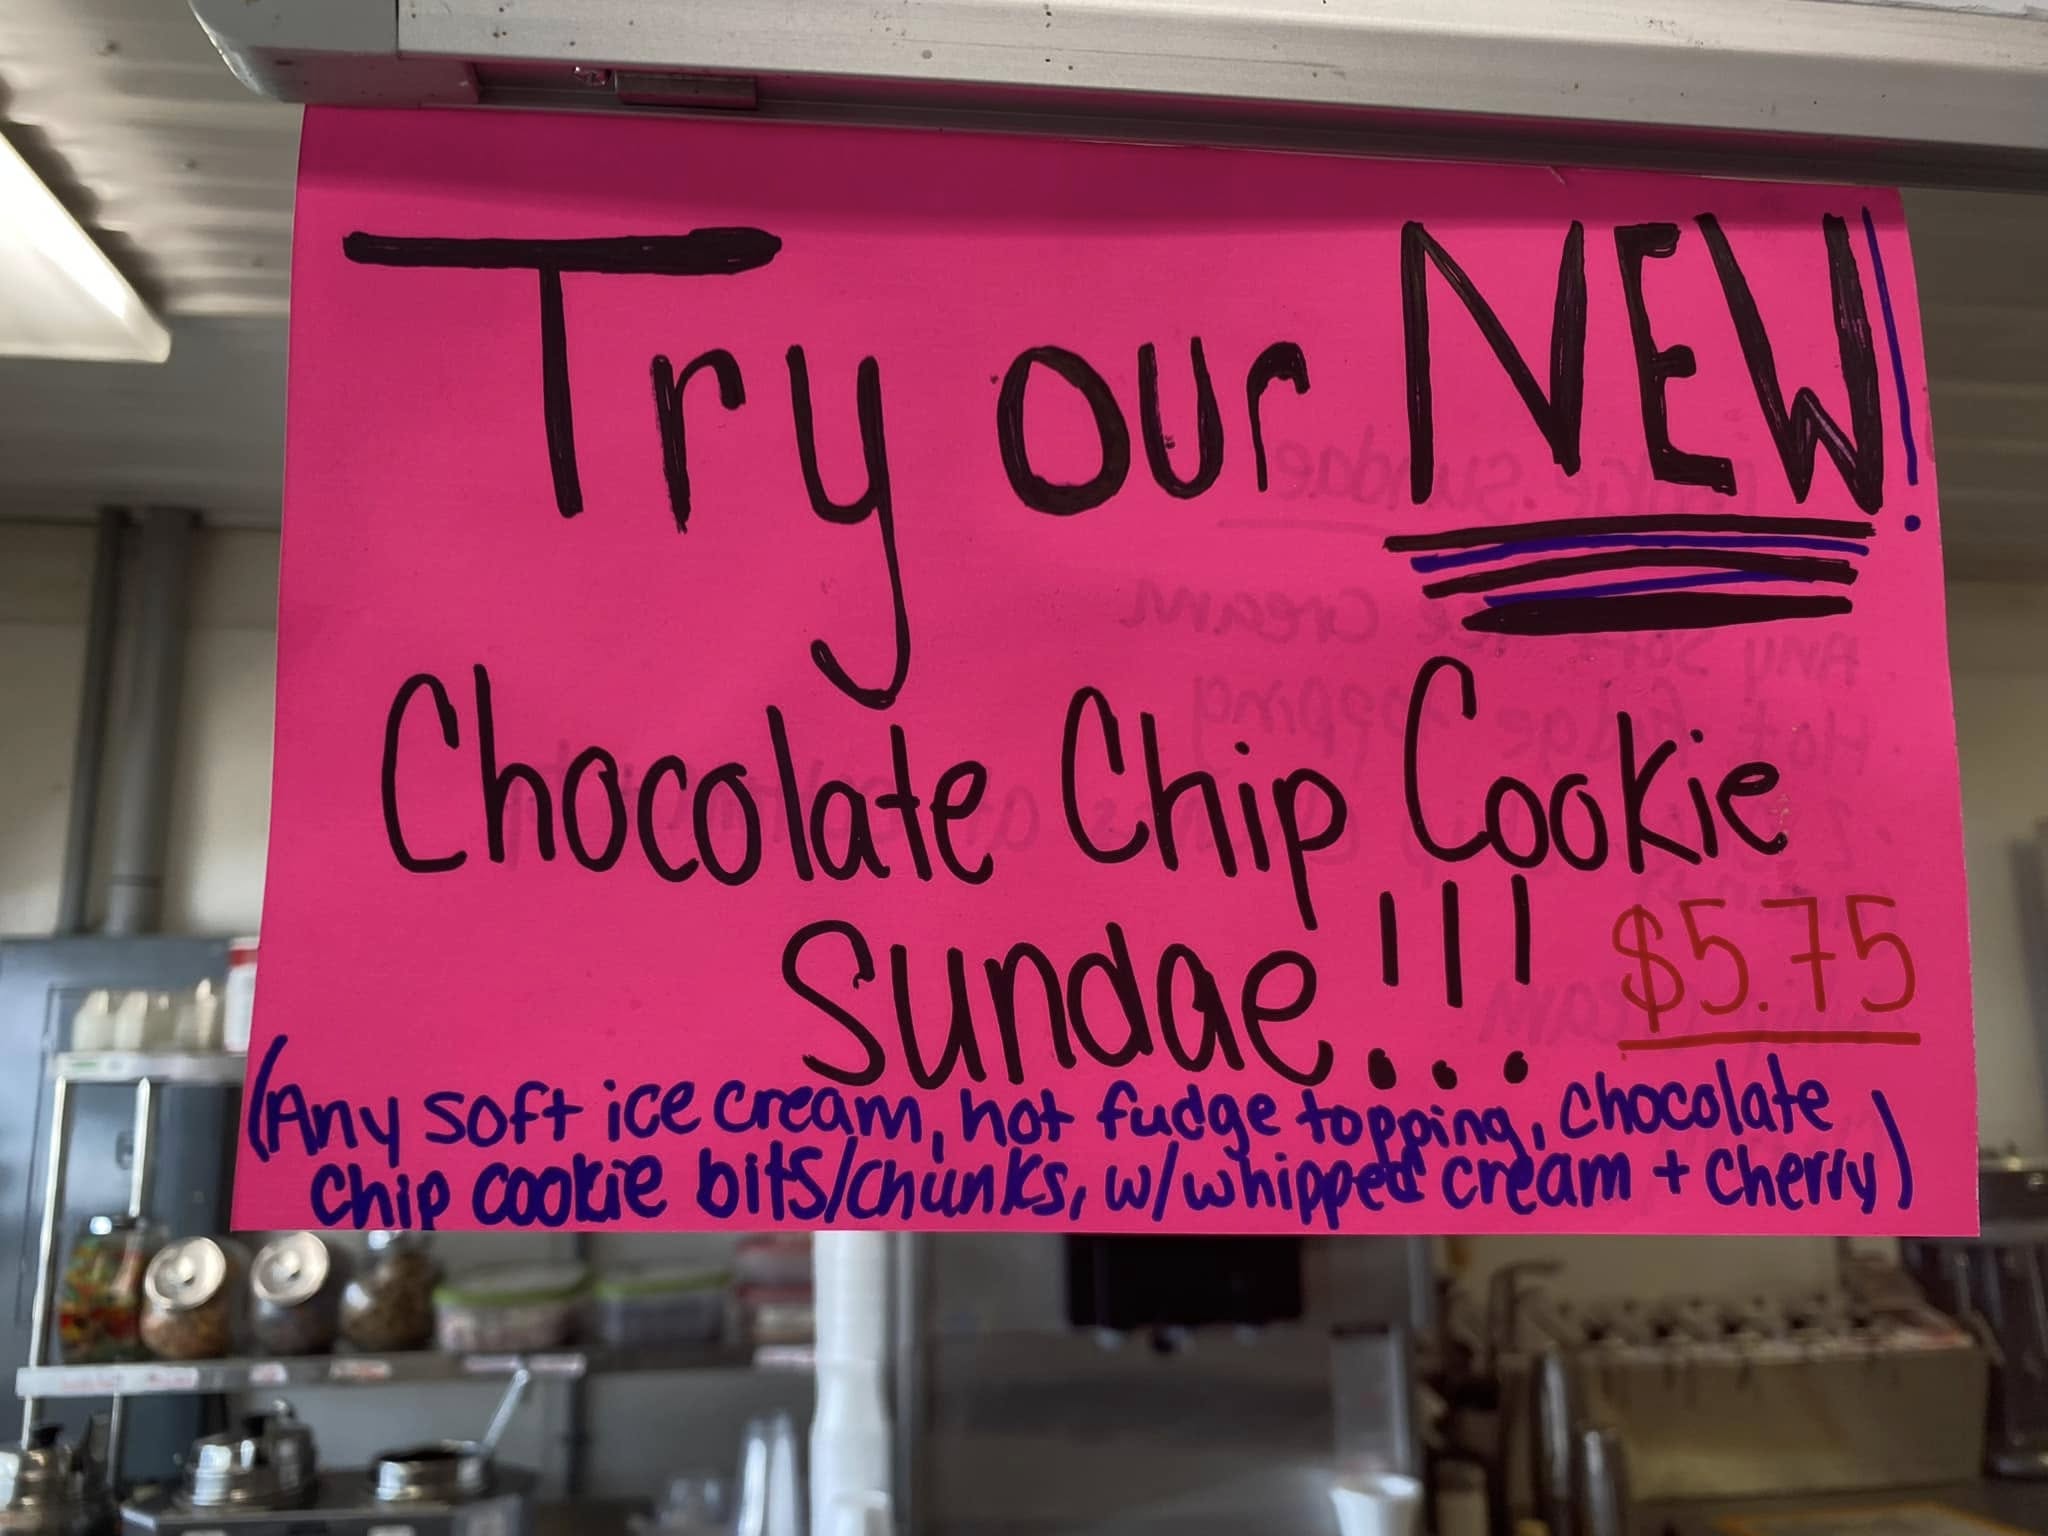 Try our NEW!
Chocolate Chip Cookie
Sundae!!! $5.75
(Any soft ice cream, hot fudge topping, chocolate
chip cookie bits/chunks, w/whipped cream + cherry)